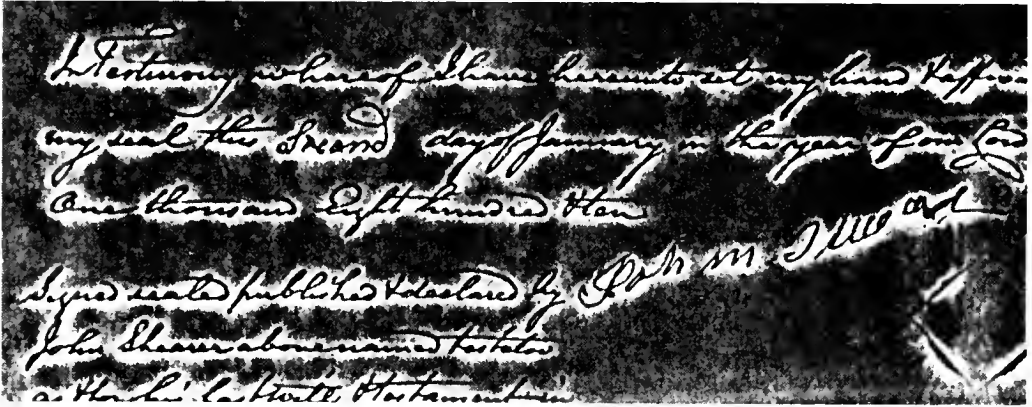 In Testimony whereof I have hereunto set my hand & affixed
my seal this Second day of January in the year of our Lord
One thousand Eight hundred & ten
Signed sealed published & declared by John
John Shearer above named testator
as & for his last Will & testament in